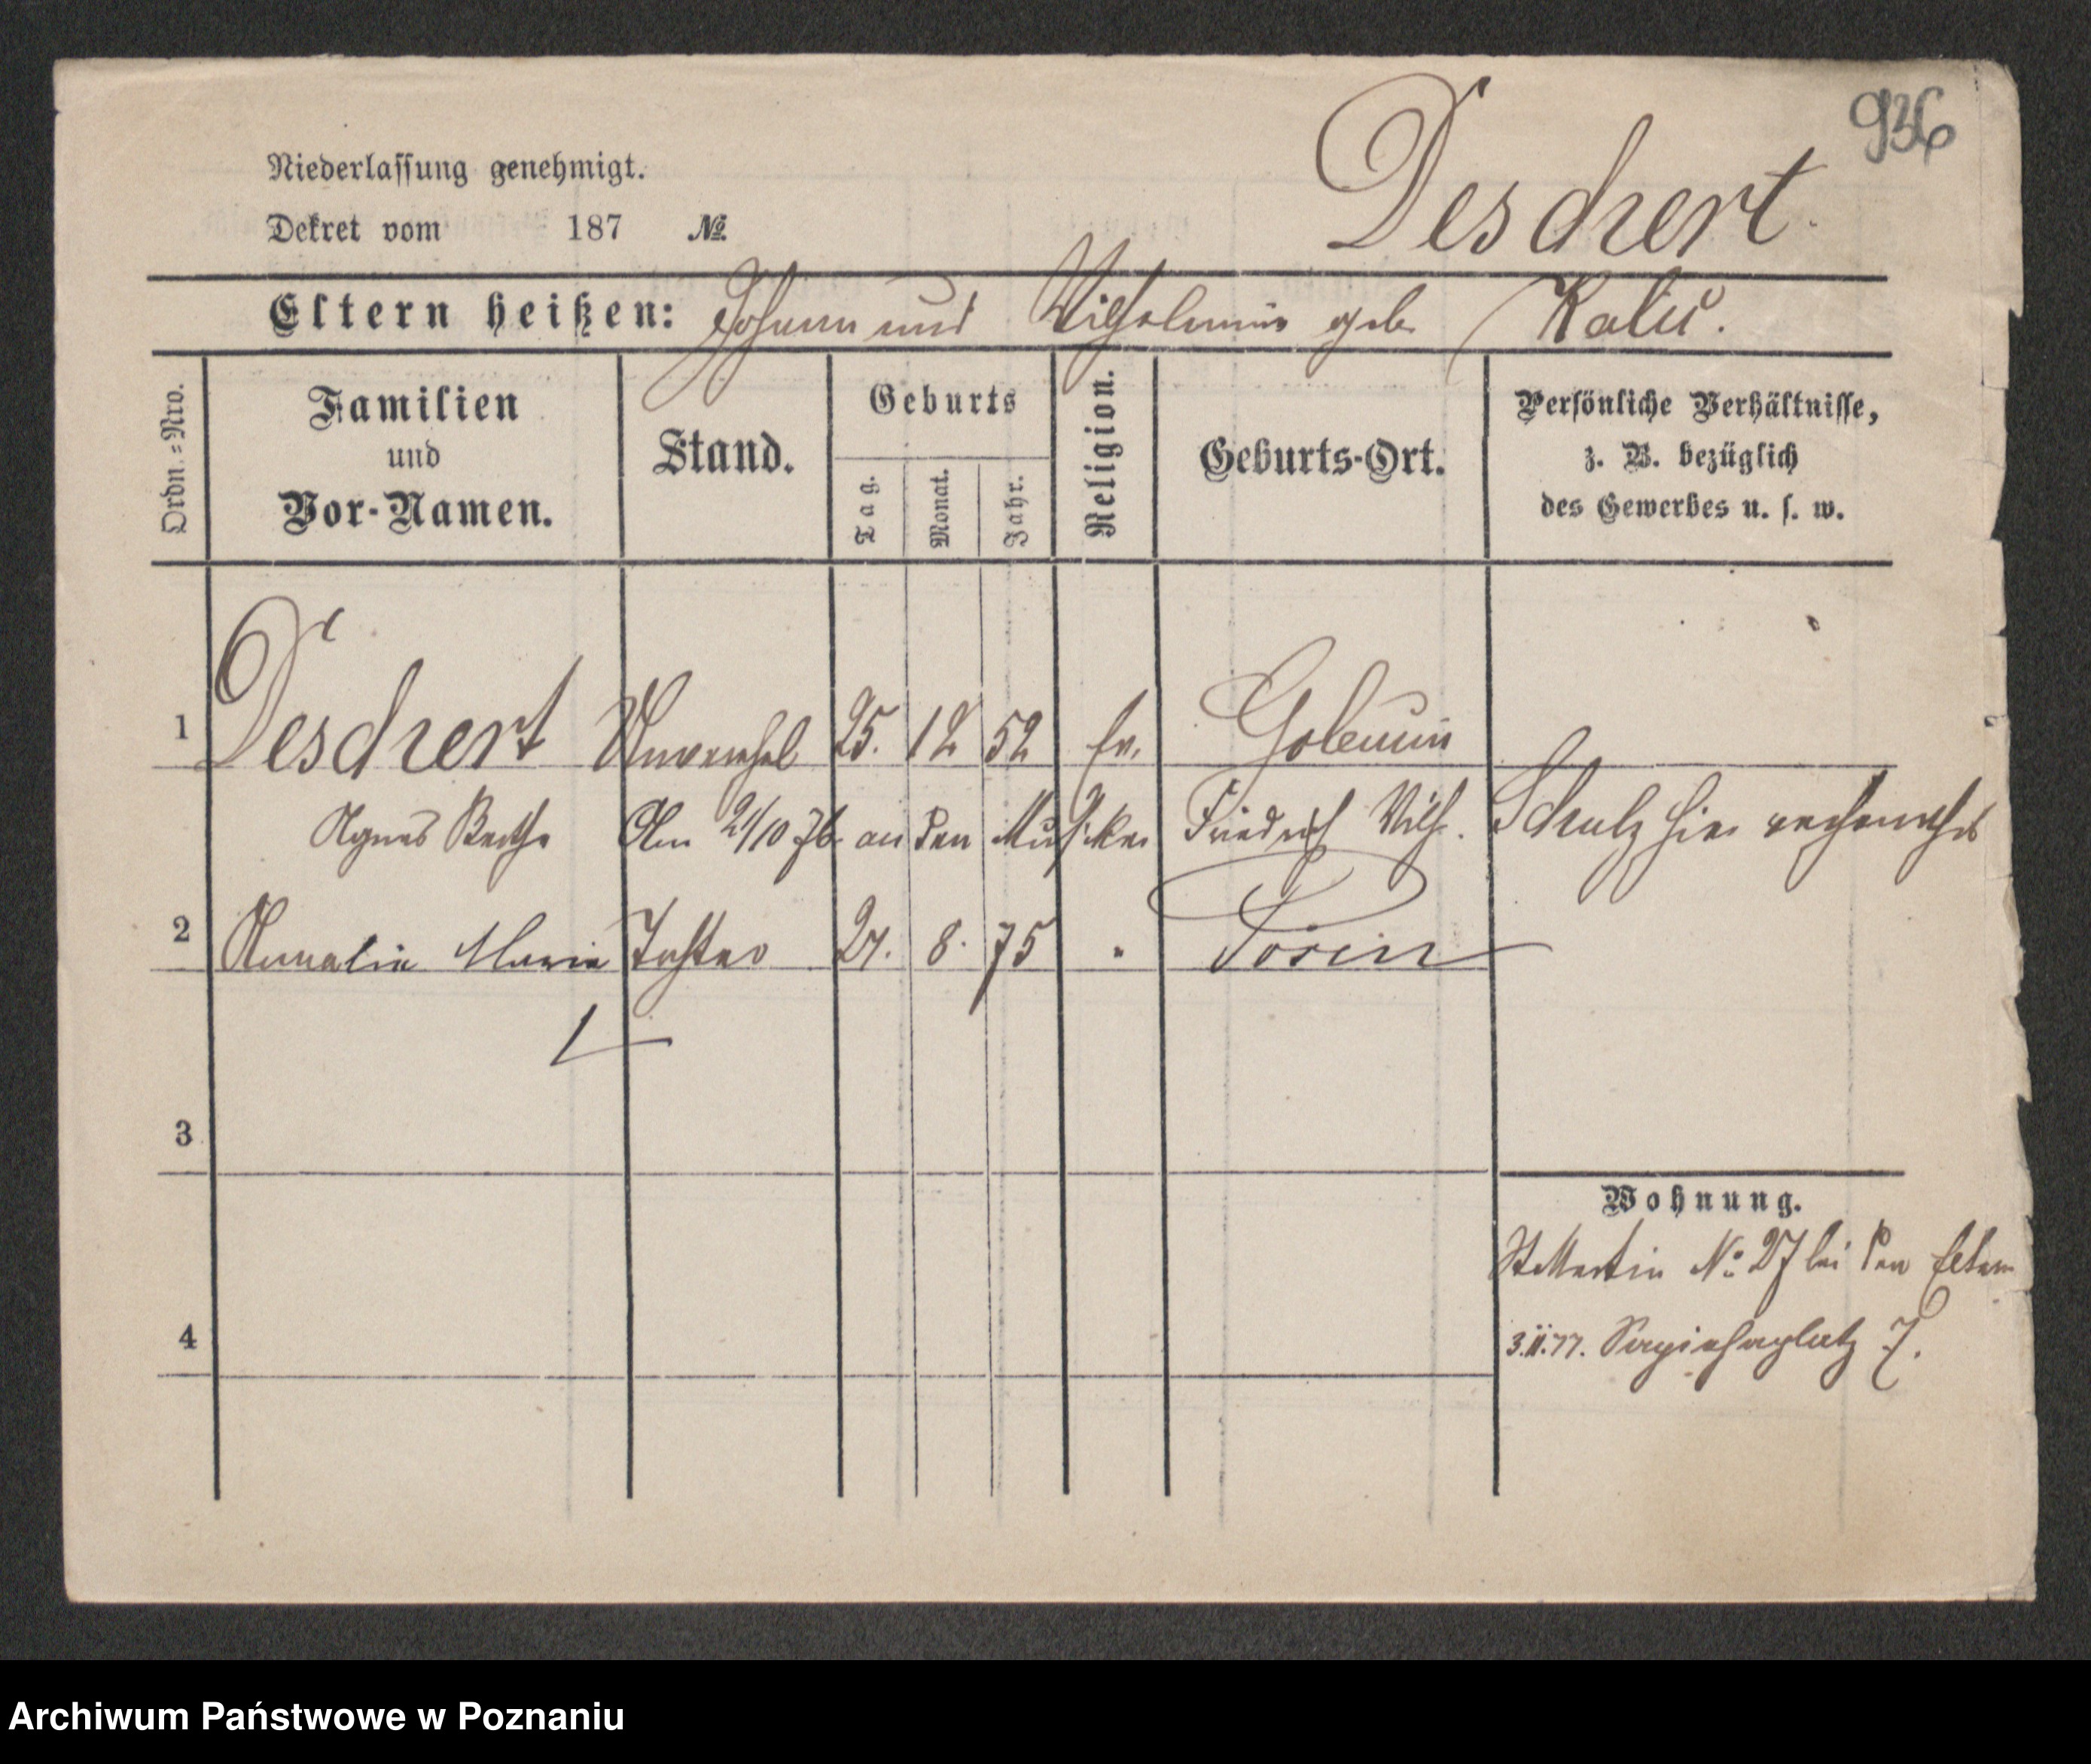 936
Deschert.
Niederlassung genehmigt.
Dekret vom 187 №
Eltern heißen: Johann und Wilhelmine geb. Kalis.
Ordn.=Nro.
Familien
und
Vor-Namen.
Stand.
Geburts
Tag.
Monat.
Jahr.
Religion.
Geburts-Ort.
Persönliche Verhältnisse,
z. B. bezüglich
des Gewerbes u. s. w.
1 Deschert Unverehel 25. 12 52 Ev.
Agnes Bertha Am 21/10 76 an den Musiker Friedrich Wilh. Schulz hier verheirathet
2 Amalie Marie Tochter 27. 8. 75 " Posen
3
4
Wohnung.
St Martin No 27 bei den Eltern
3.11.77. Sapiehaplatz 7.
Archiwum Państwowe w Poznaniu